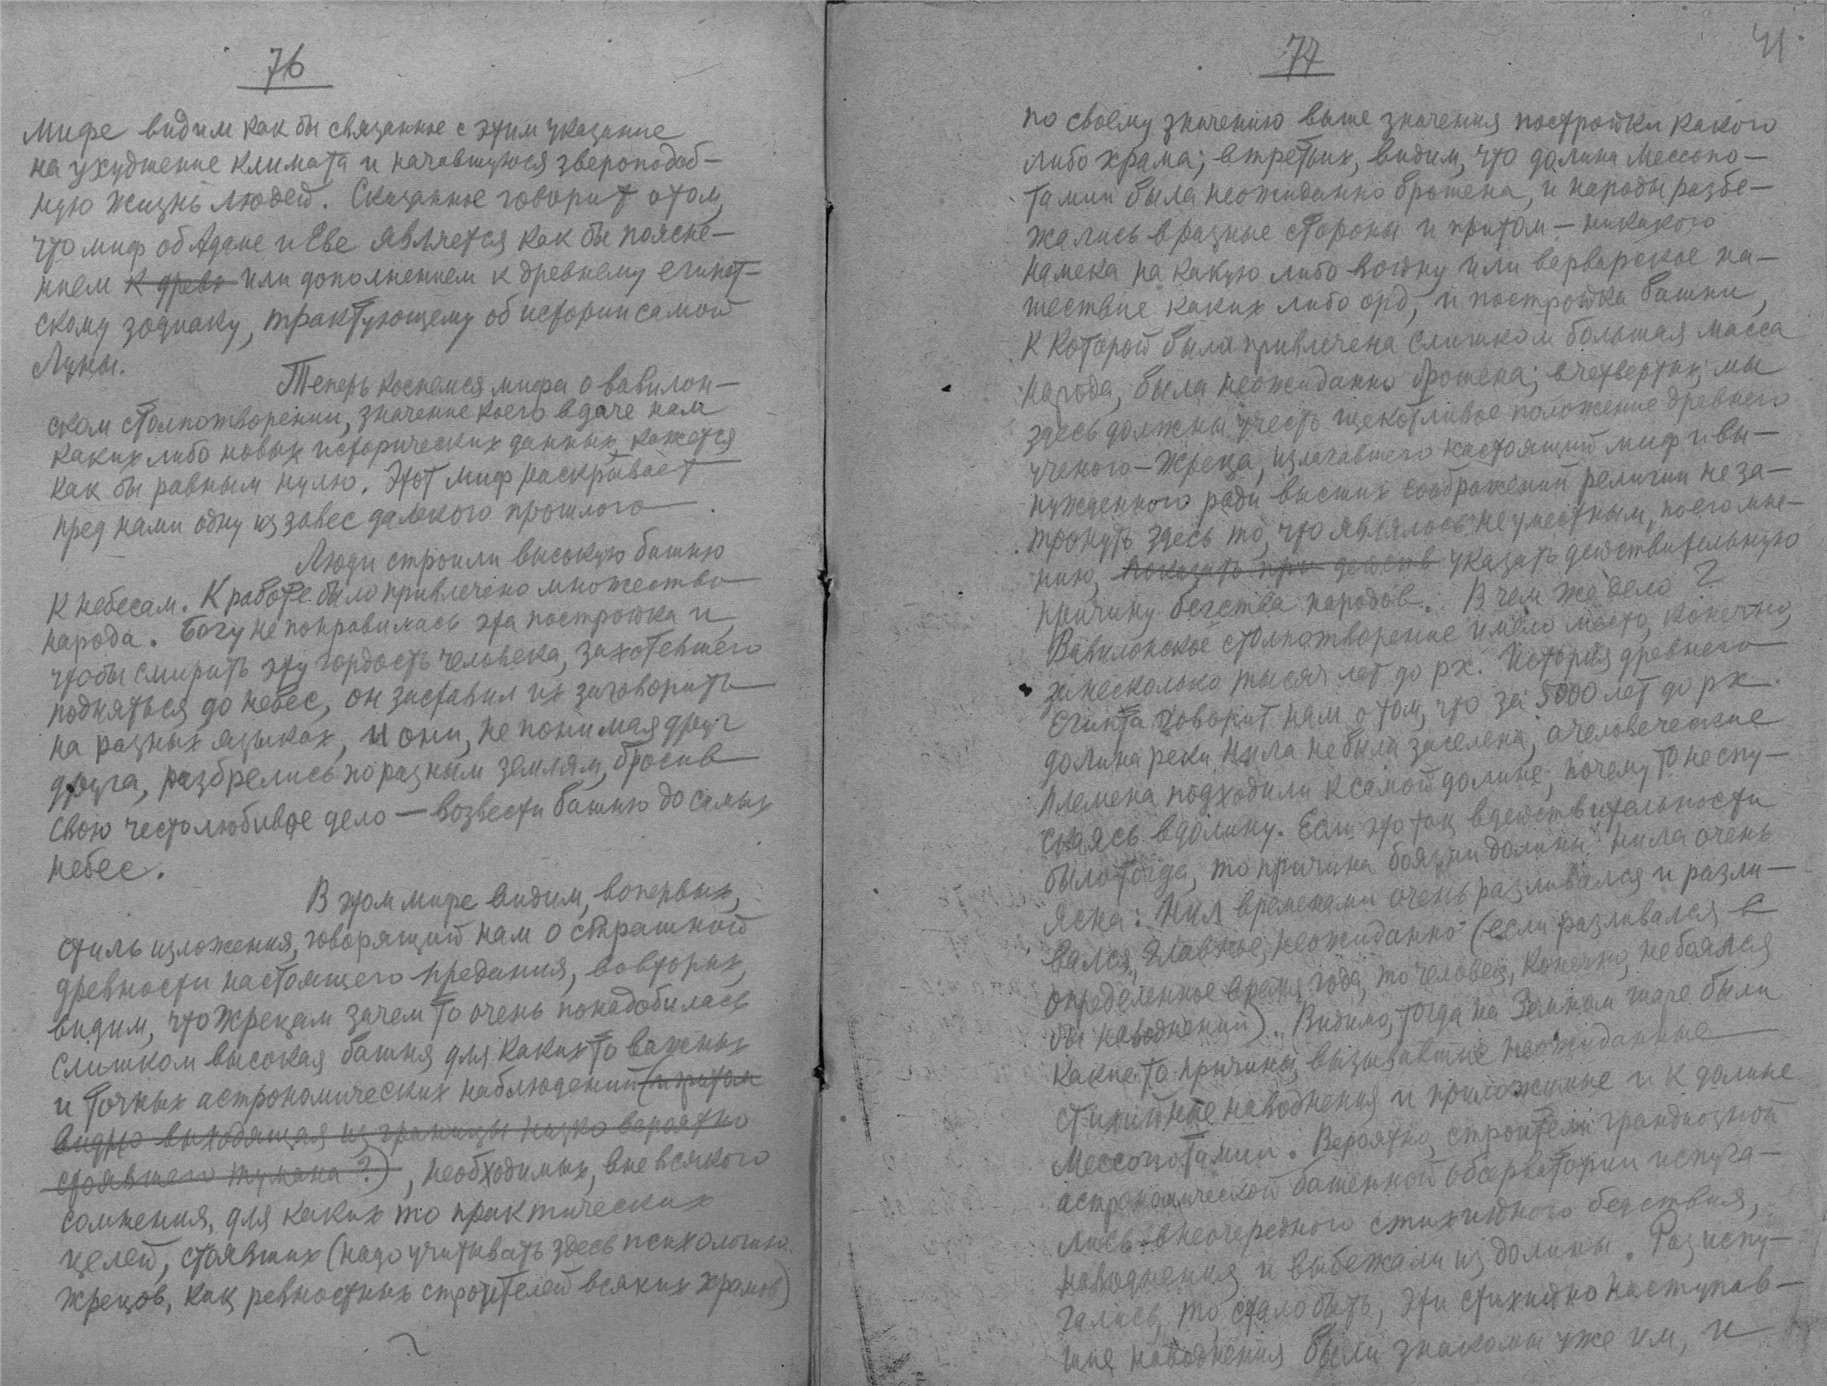 76
мифе видим как бы связанное с этим указание
на ухудшение климата и начавшуюся звероподоб-
ную жизнь людей. Сказанное говорит о том,
что миф об Адаме и Еве является как бы поясне-
нием к древн или дополнением к древнему египет-
скому зодиаку, трактующему об истории самой
Луны.
Теперь коснемся мифа о вавилон-
ском столпотворении, значение коего в даче нам
каких либо новых исторических данных кажется
как бы равным нулю. Этот миф раскрывает
пред нами одну из завес далекого прошлого.
Люди строили высокую башню
к небесам. К работе было привлечено множество
народа. Богу не понравилась эта постройка и,
чтобы смирить эту гордость человека, захотевшего
подняться до небес, он заставил их заговорить
на разных языках, и они, не понимая друг
друга, разбрелись по разным землям, бросив
свою честолюбивое дело — возвести башню до самых
небес.
В этом мифе видим, вопервых,
стиль изложения, говорящий нам о страшной
древности настоящего предания, вовторых,
видим, что жрецам зачем то очень понадобилась
слишком высокая башня для каких то важных
и точных астрономических наблюдений (притом
видно выходящая из границы низко вероятно
стоявшего тумана?), необходимых, вне всякого
сомнения, для каких то практических
целей, стоявших (надо учитывать здесь психологию
жрецов, как ревностных строителей всяких храмов)
77
41
по своему значению выше значения постройки какого
либо храма; втретьих, видим, что долина Мессопо-
тамии была неожиданно брошена, и народы разбе-
жались в разные стороны и притом — никакого
намека на какую либо войну или варварское на-
шествие каких либо орд, и постройка башни,
к которой была привлечена слишком большая масса
народа, была неожиданно брошена; вчетвертых, мы
здесь должны учесть щекотливое положение древнего
ученого-жреца, излагавшего настоящий миф и вы-
нужденного ради высших соображений религии не за-
тронуть здесь то, что являлось неуместным, по его мне-
нию, показать при действ указать действительную
причину бегства народов. В чем же дело?
Вавилонское столпотворение имело место, конечно,
за несколько тысяч лет до р.х. История древнего
Египта говорит нам о том, что за 5000 лет до р.х.
долина реки Нила не была заселена, а человеческие
племена подходили к самой долине, почему то не спу-
скаясь в долину. Если это так в действительности
было тогда, то причина боязни долины Нила очень
ясна: Нил временами очень разливался и разли-
вался, главное, неожиданно (если разливался в
определенное время года, то человек, конечно, не боялся
бы наводнений). Видимо, тогда на Земном шаре были
какие то причины, вызывавшие неожиданные
стихийные наводнения и приложимые и к долине
Мессопотамии. Вероятно, строители грандиозной
астрономической башенной обсерватории испуга-
лись внеочередного стихийного бедствия,
наводнения и выбежали из долины. Раз испу-
гались, то, стало быть, эти стихийно наступав-
шие наводнения были знакомы уже им, и